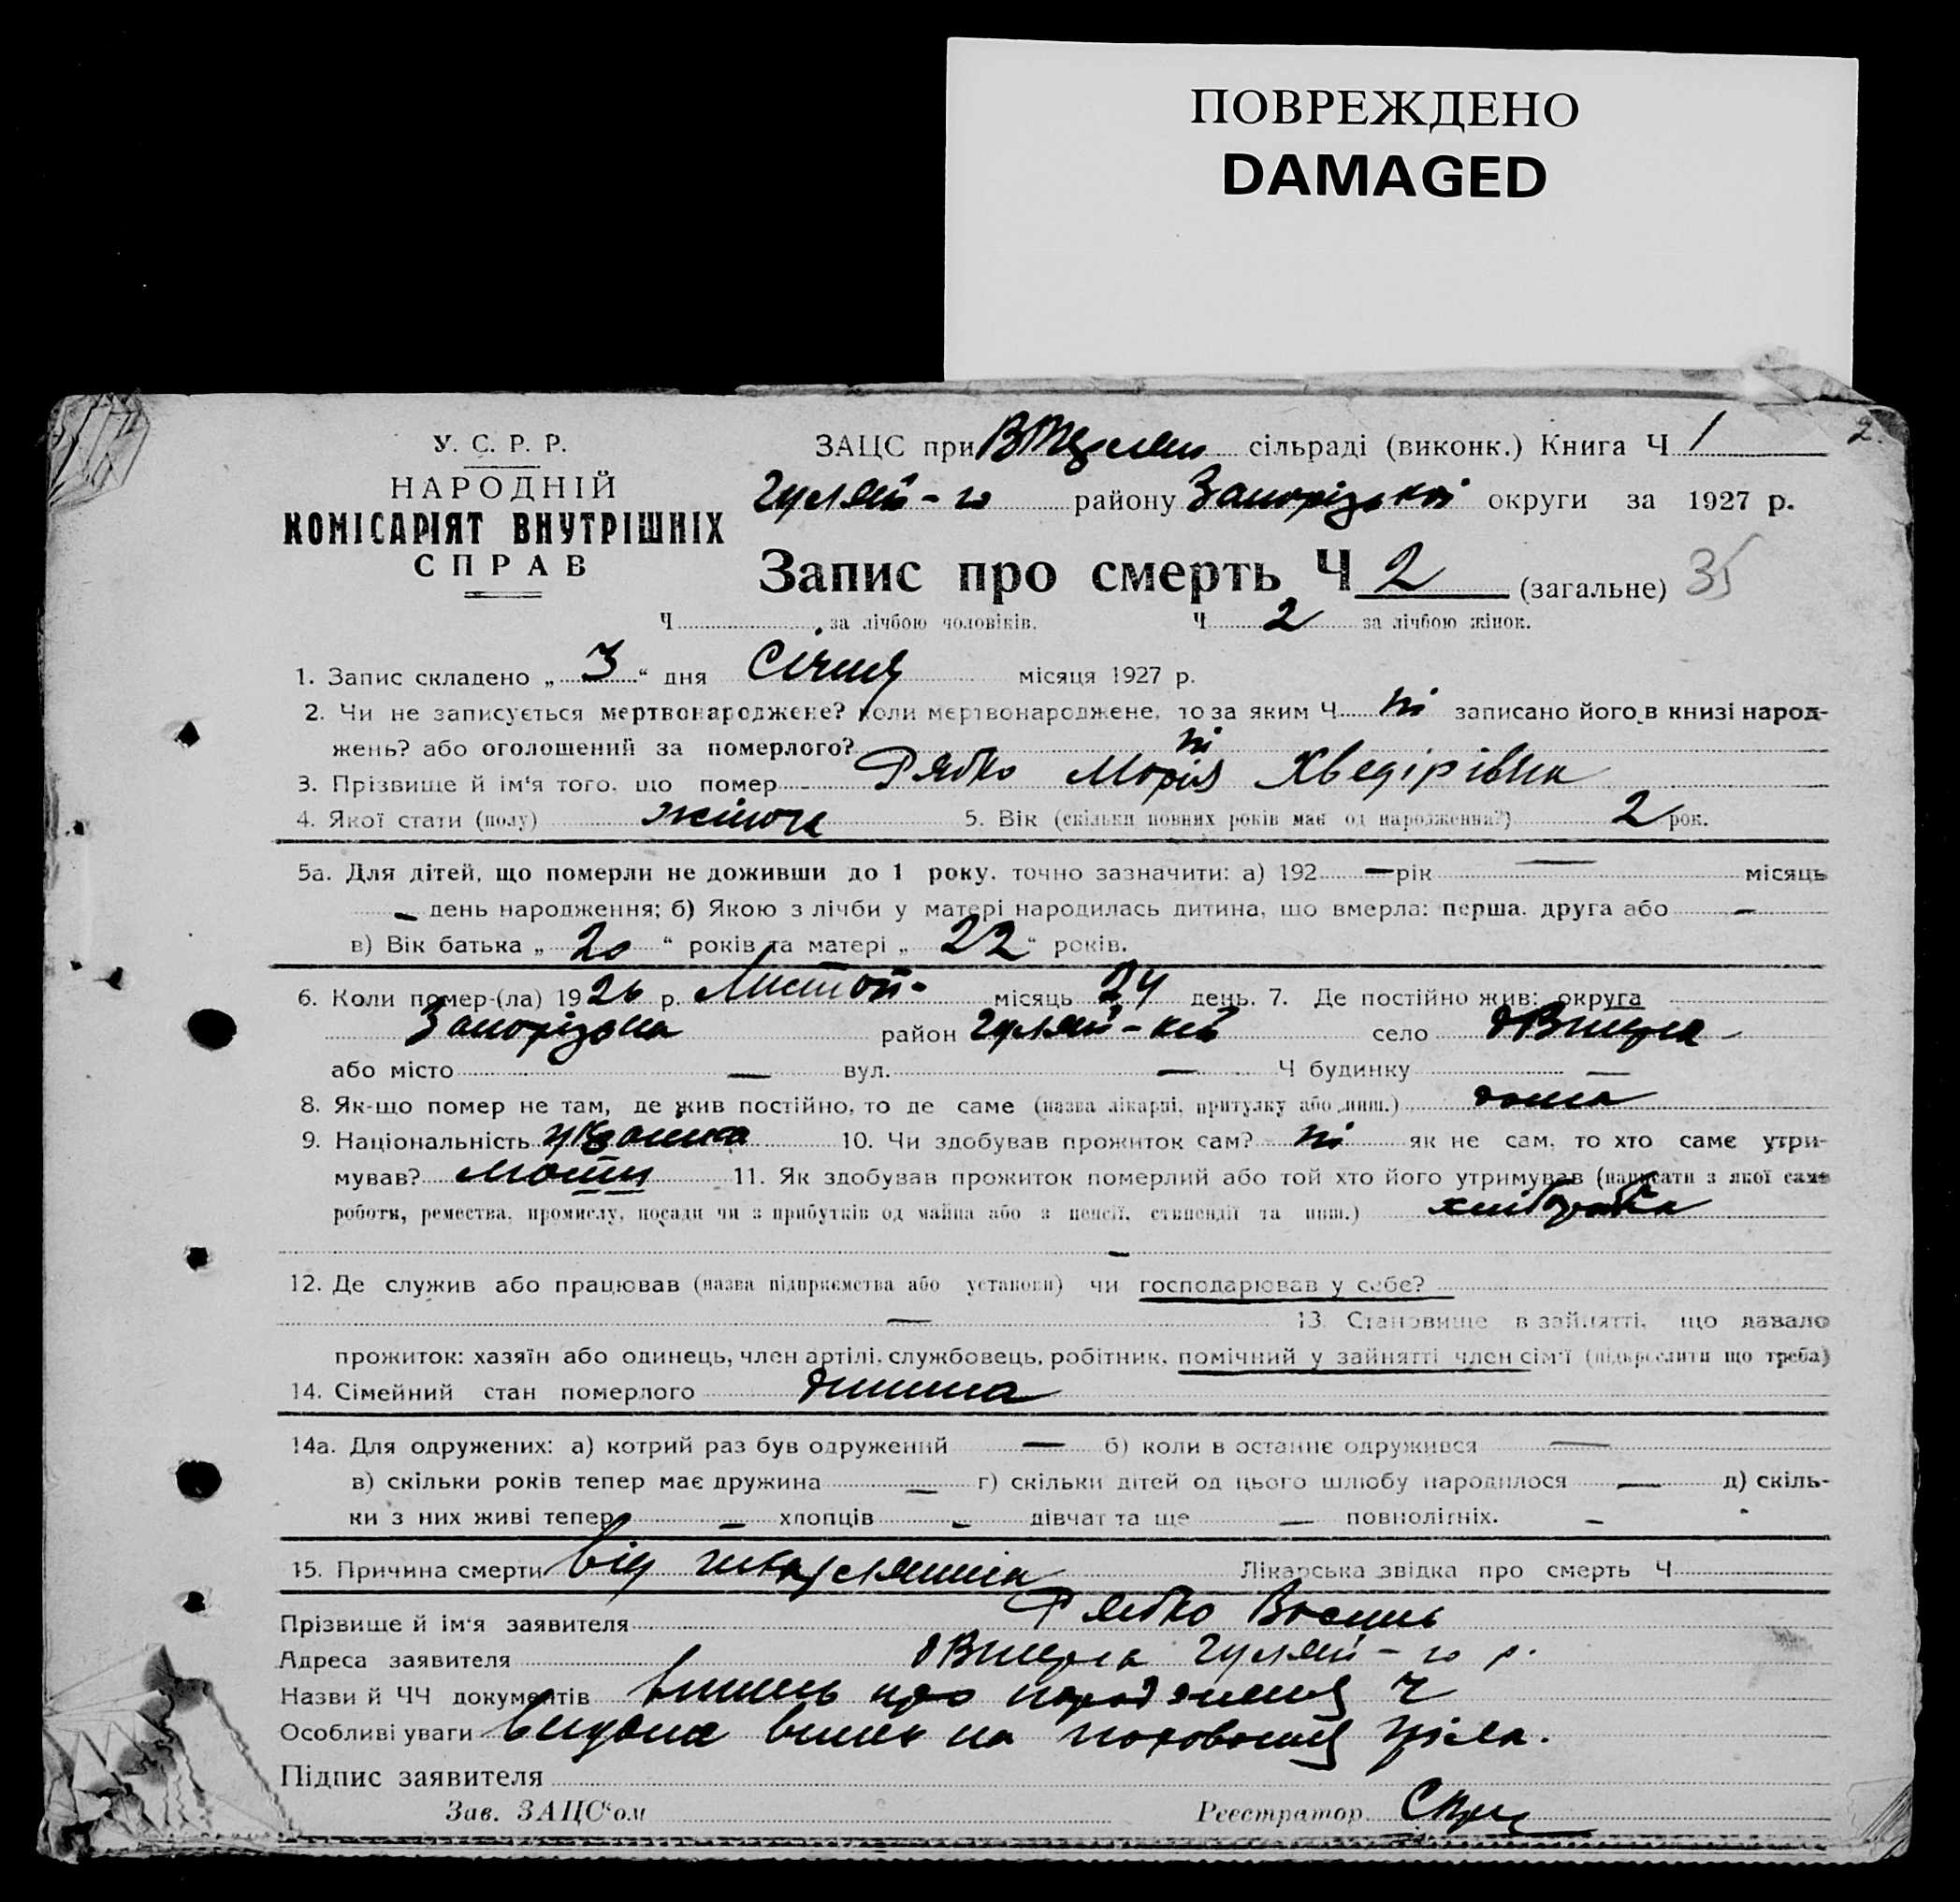 ПОВРЕЖДЕНО
DAMAGED
2.
У. С. Р. Р.
НАРОДНІЙ
КОМІСАРІЯТ ВНУТРІШНІХ
СПРАВ
ЗАЦС при сільраді (виконк.) Книга Ч 1
Гуляй-го району Запорізької округи за 1927 р.
Запис про смерть Ч 2 (загальне) 35
Ч за лічбою чоловіків. Ч 2 за лічбою жінок.
1. Запис складено „ 3 “ дня Січня місяця 1927 р.
2. Чи не записується мертвонароджене? Коли мертвонароджене, то за яким Ч ні записано його в книзі народ-
жень? або оголошений за померлого? ні
3. Прізвище й ім'я того, що помер Рябко Марія Хведірівна
4. Якої стати (полу) жіноча 5. Вік (скільки повних років має од народження?) 2 рок.
5а. Для дітей, що померли не доживши до 1 року, точно зазначити: а) 192 — рік — місяць
— день народження; б) Якою з лічби у матері народилась дитина, що вмерла: перша, друга або —
в) Вік батька „ 20 “ років та матері „ 22 “ років.
6. Коли помер-(ла) 1926 р. Листоп- місяць 24 день. 7. Де постійно жив: округа
Запорізька район Гуляй-кий село
або місто — вул. — Ч будинку —
8. Як-що помер не там, де жив постійно, то де саме (назва лікарні, притулку або инш.) дома
9. Національність 10. Чи здобував прожиток сам? ні як не сам, то хто саме утри-
мував? Мати 11. Як здобував прожиток померлий або той хто його утримував (написати з якої саме
роботи, ремества, промислу, посади чи з прибутків од майна або з пенсії, стипендії та инш.)
—
12. Де служив або працював (назва підприємства або установи) чи господарював у себе?
— 13. Становище в зайнятті, що давало
прожиток: хазяїн або одинець, член артілі, службовець, робітник, помічний у зайнятті член сім'ї (підкреслити що треба)
14. Сімейний стан померлого дитина
14а. Для одружених: а) котрий раз був одружений — б) коли в останнє одружився —
в) скільки років тепер має дружина — г) скільки дітей од цього шлюбу народилося — д) скіль-
ки з них живі тепер — хлопців — дівчат та ще — повнолітніх. —
15. Причина смерти від Лікарська звідка про смерть Ч
Прізвище й ім'я заявителя Рябко
Адреса заявителя Гуляй-го р.
Назви й ЧЧ документів про народження Ч
Особливі уваги видана на поховання тіла.
Підпис заявителя
Зав. ЗАЦС'ом Реєстратор